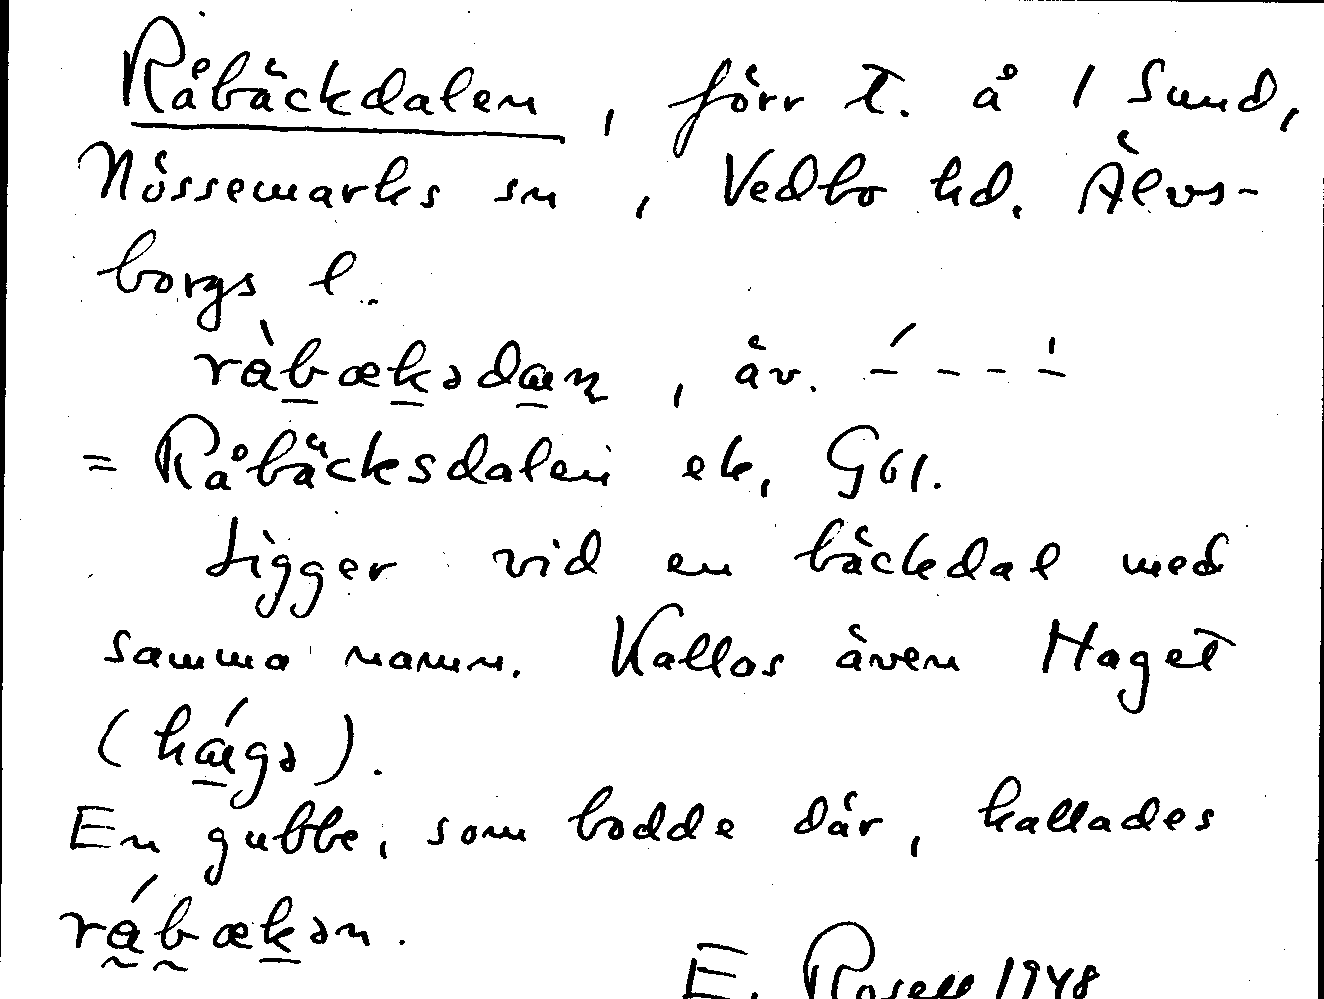 Råbäckdalen, förr t. å 1 Sund,
Nössemarks sn, Vedbo hd. Älvs-
borgs l.
ràbækədaɳ, äv. –́ – – –̍
= Råbäcksdalen ek, Gbl.
Ligger vid en bäckdal med
samma namn. Kallas även Haget
(hágə).
En gubbe, som bodde där, kallades
rábækən.
E. Rosell 1948